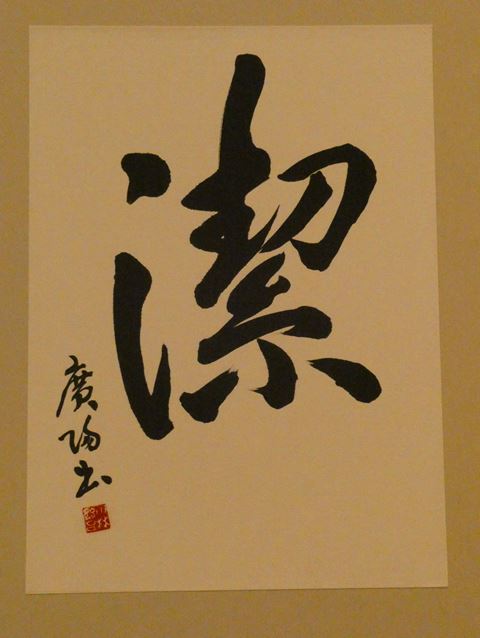 潔
廣陽書